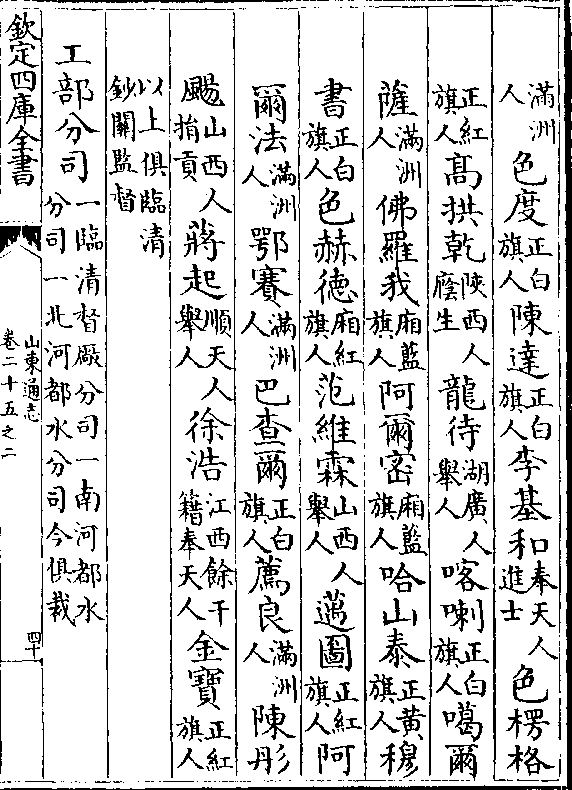 滿洲人色度正白旗人陳達正白旗人李基和奉天人進士色楞格
正紅旗人高拱乾陜西人廕生龍待湖廣人舉人喀喇正白旗人噶爾
薩滿洲人佛羅我廂藍旗人阿爾密廂藍旗人哈山泰正黃旗人穆
書正白旗人色赫德廂紅旗人范維霖山西人舉人邁圖正紅旗人阿
爾法滿洲人鄂賽滿洲人巴查爾正白旗人薦良滿洲人陳彤
颺山西人捐貢蔣起順天人舉人徐浩江西餘干籍奉天人金寶正紅旗人
以上俱臨清鈔關監督
工部分司一臨清督厰分司一南河都水分司一北河都水分司今俱裁
欽定四庫全書
山東通志
卷二十五之二
四十